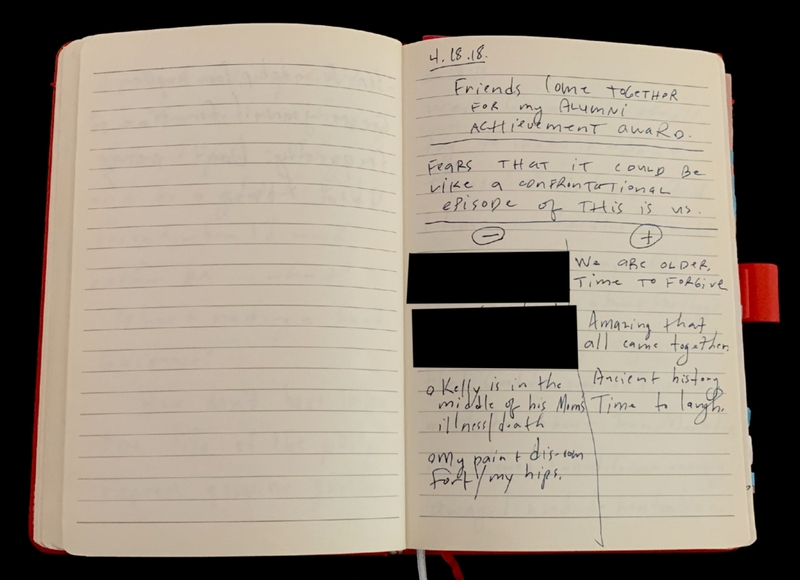 4.18.18.
Friends Come TOGETHER
FOR my ALUMNI
ACHievement awaRD.
FEARS THAT iT COULD BE
LIKE a CONFRONTATIONAL
EPiSODE of THis is us.
−
+
We aRe OLDER,
Time TO FORGIVE
Amazing that
all came together.
o Kelly is in the
middle of his Mom's
illness/death
Ancient history
Time to laugh.
o My pain + dis-com
fort/my hips.